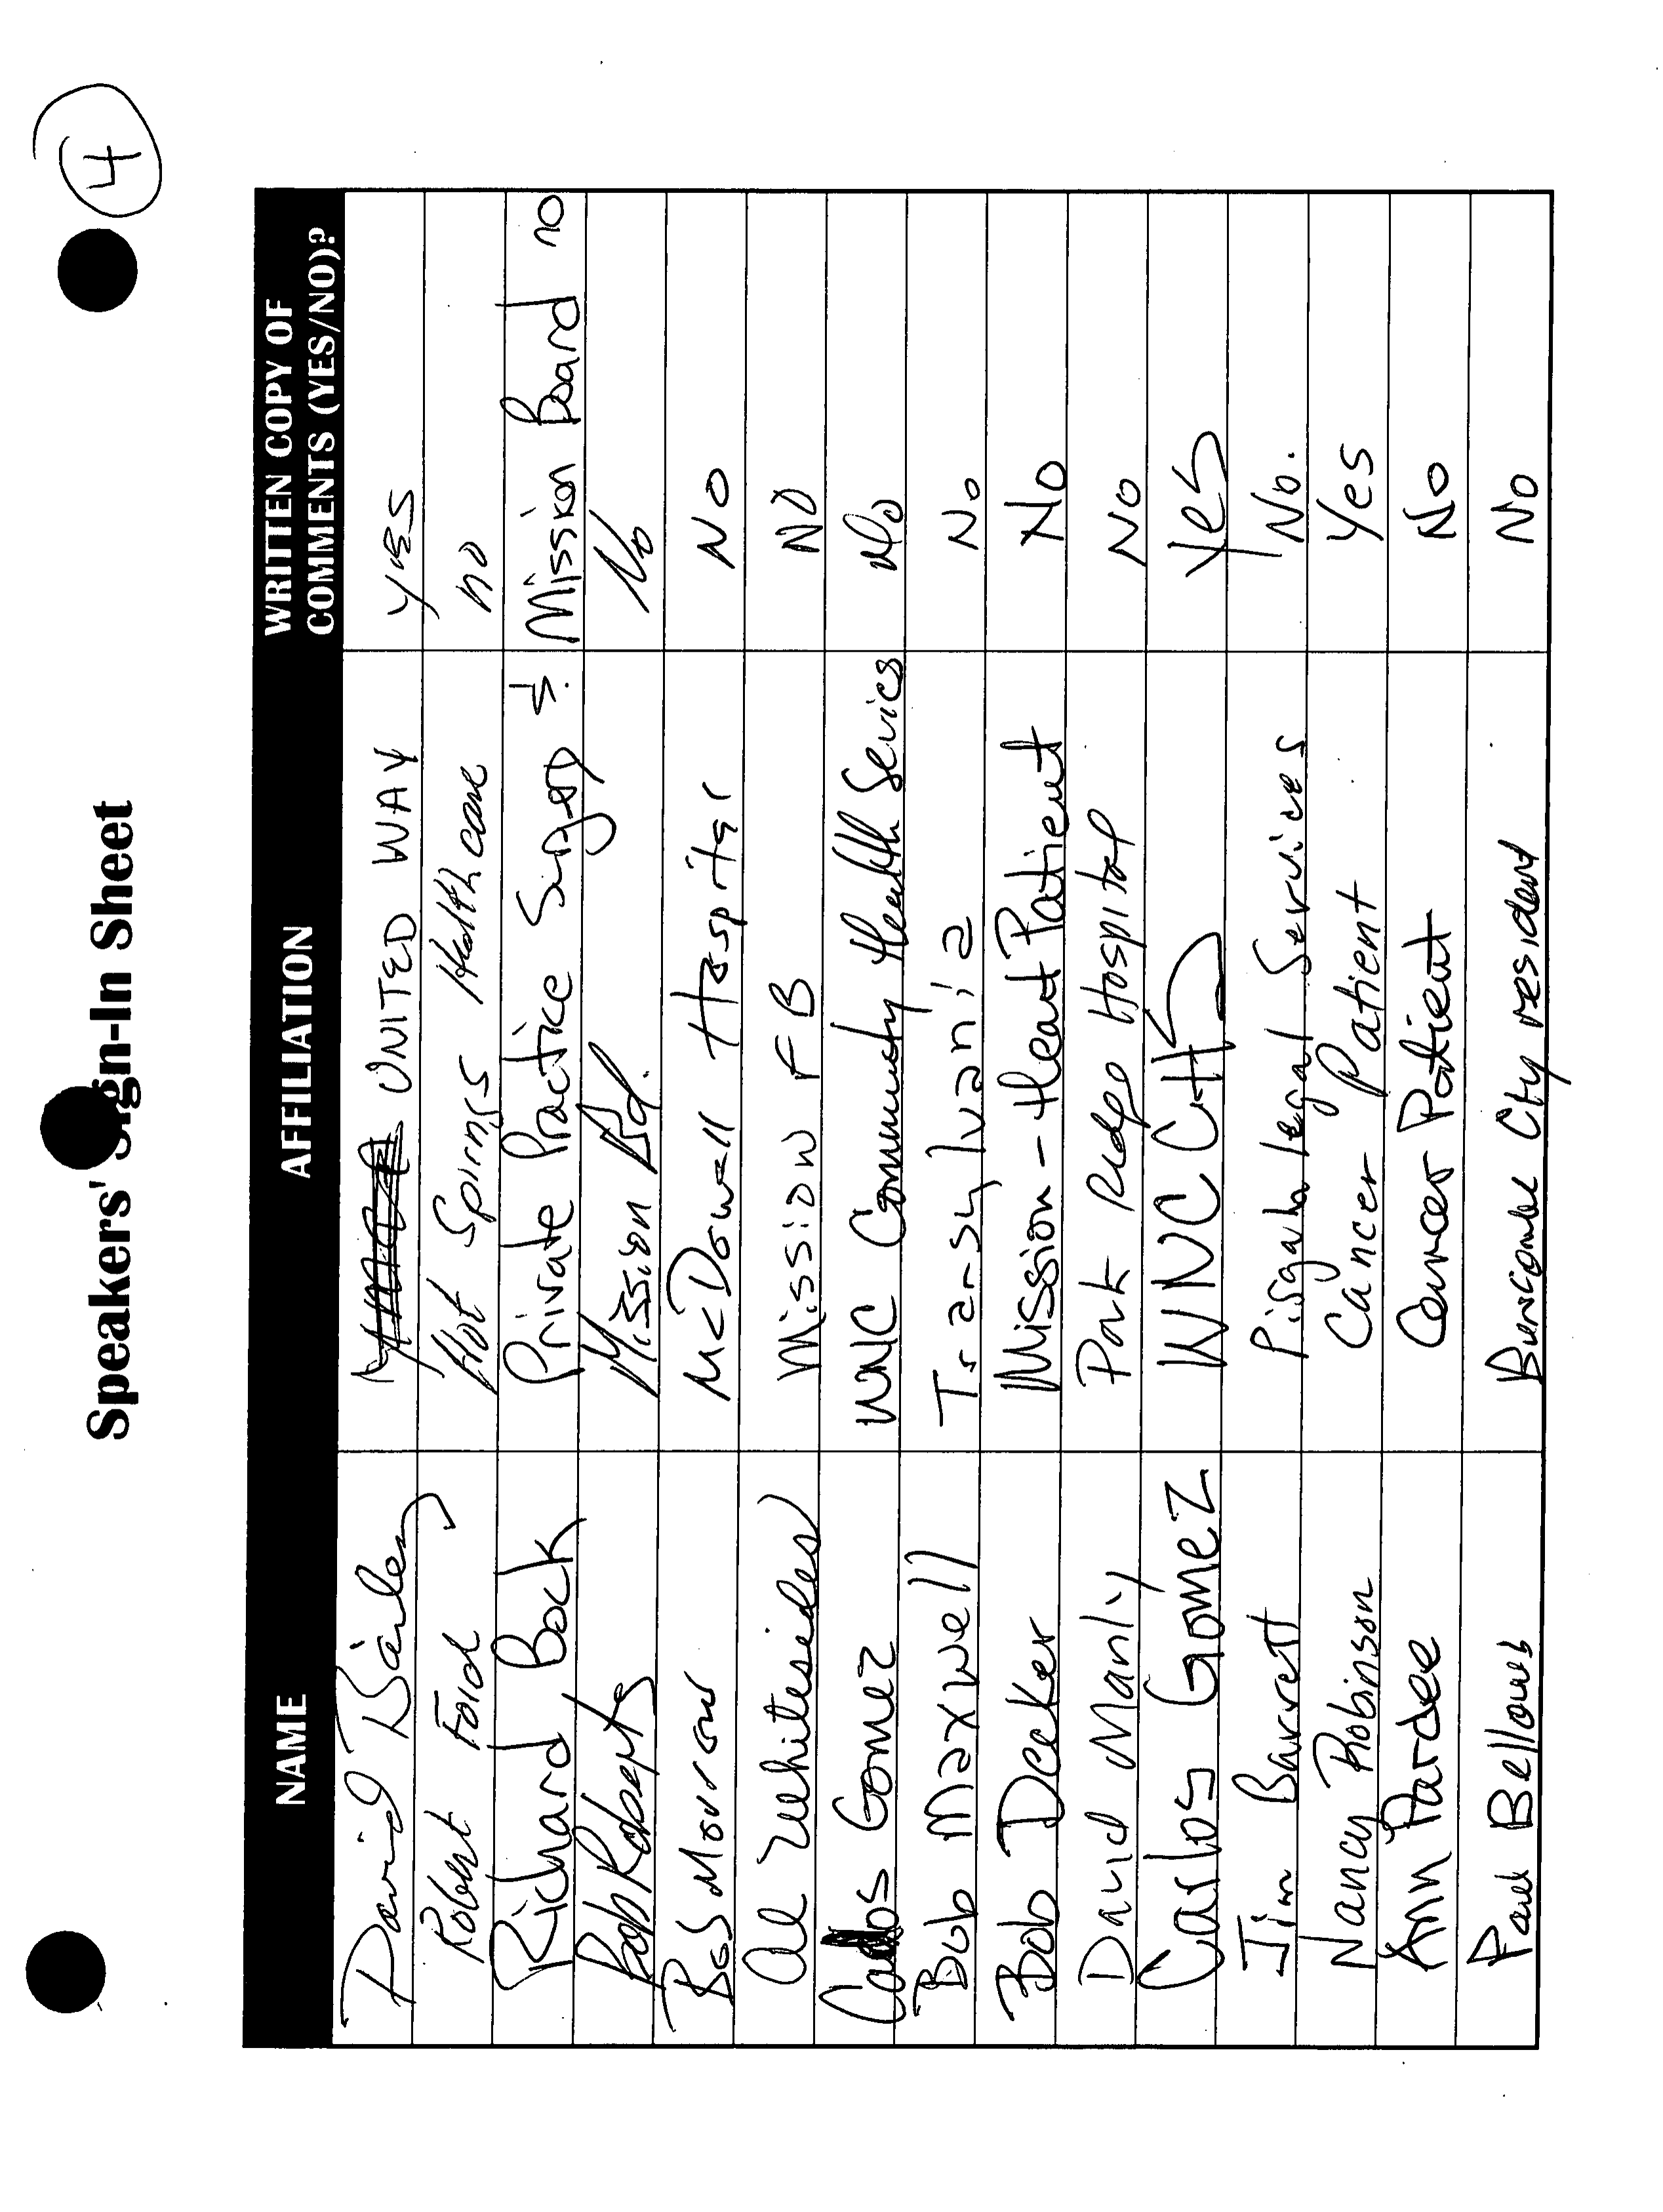 4
Speakers' Sign-In Sheet
NAME AFFILIATION WRITTEN COPY OF COMMENTS (YES/NO)?
David Bailey UNITED WAY YES
Robert Ford Hot Springs Health care no
Richard Bock Private Practice Surgery & Mission Board no
Bob Roberts Mission Bd. No
Bob Morrow McDowell Hospital NO
Al Whitesides Mission FB NO
Carlos Gomez WNC Community Health Services No
Bob Maxwell Transylvania No
Bob Decker Mission - Heart Patient No
David Manly Park Ridge Hospital No
Carlos Gomez WNCCHS Yes
Jim Barrett Pisgah Legal Services No.
Nancy Robinson Cancer Patient Yes
Ann Pardee Cancer Patient No
Paul Bellows Buncombe Cty resident No